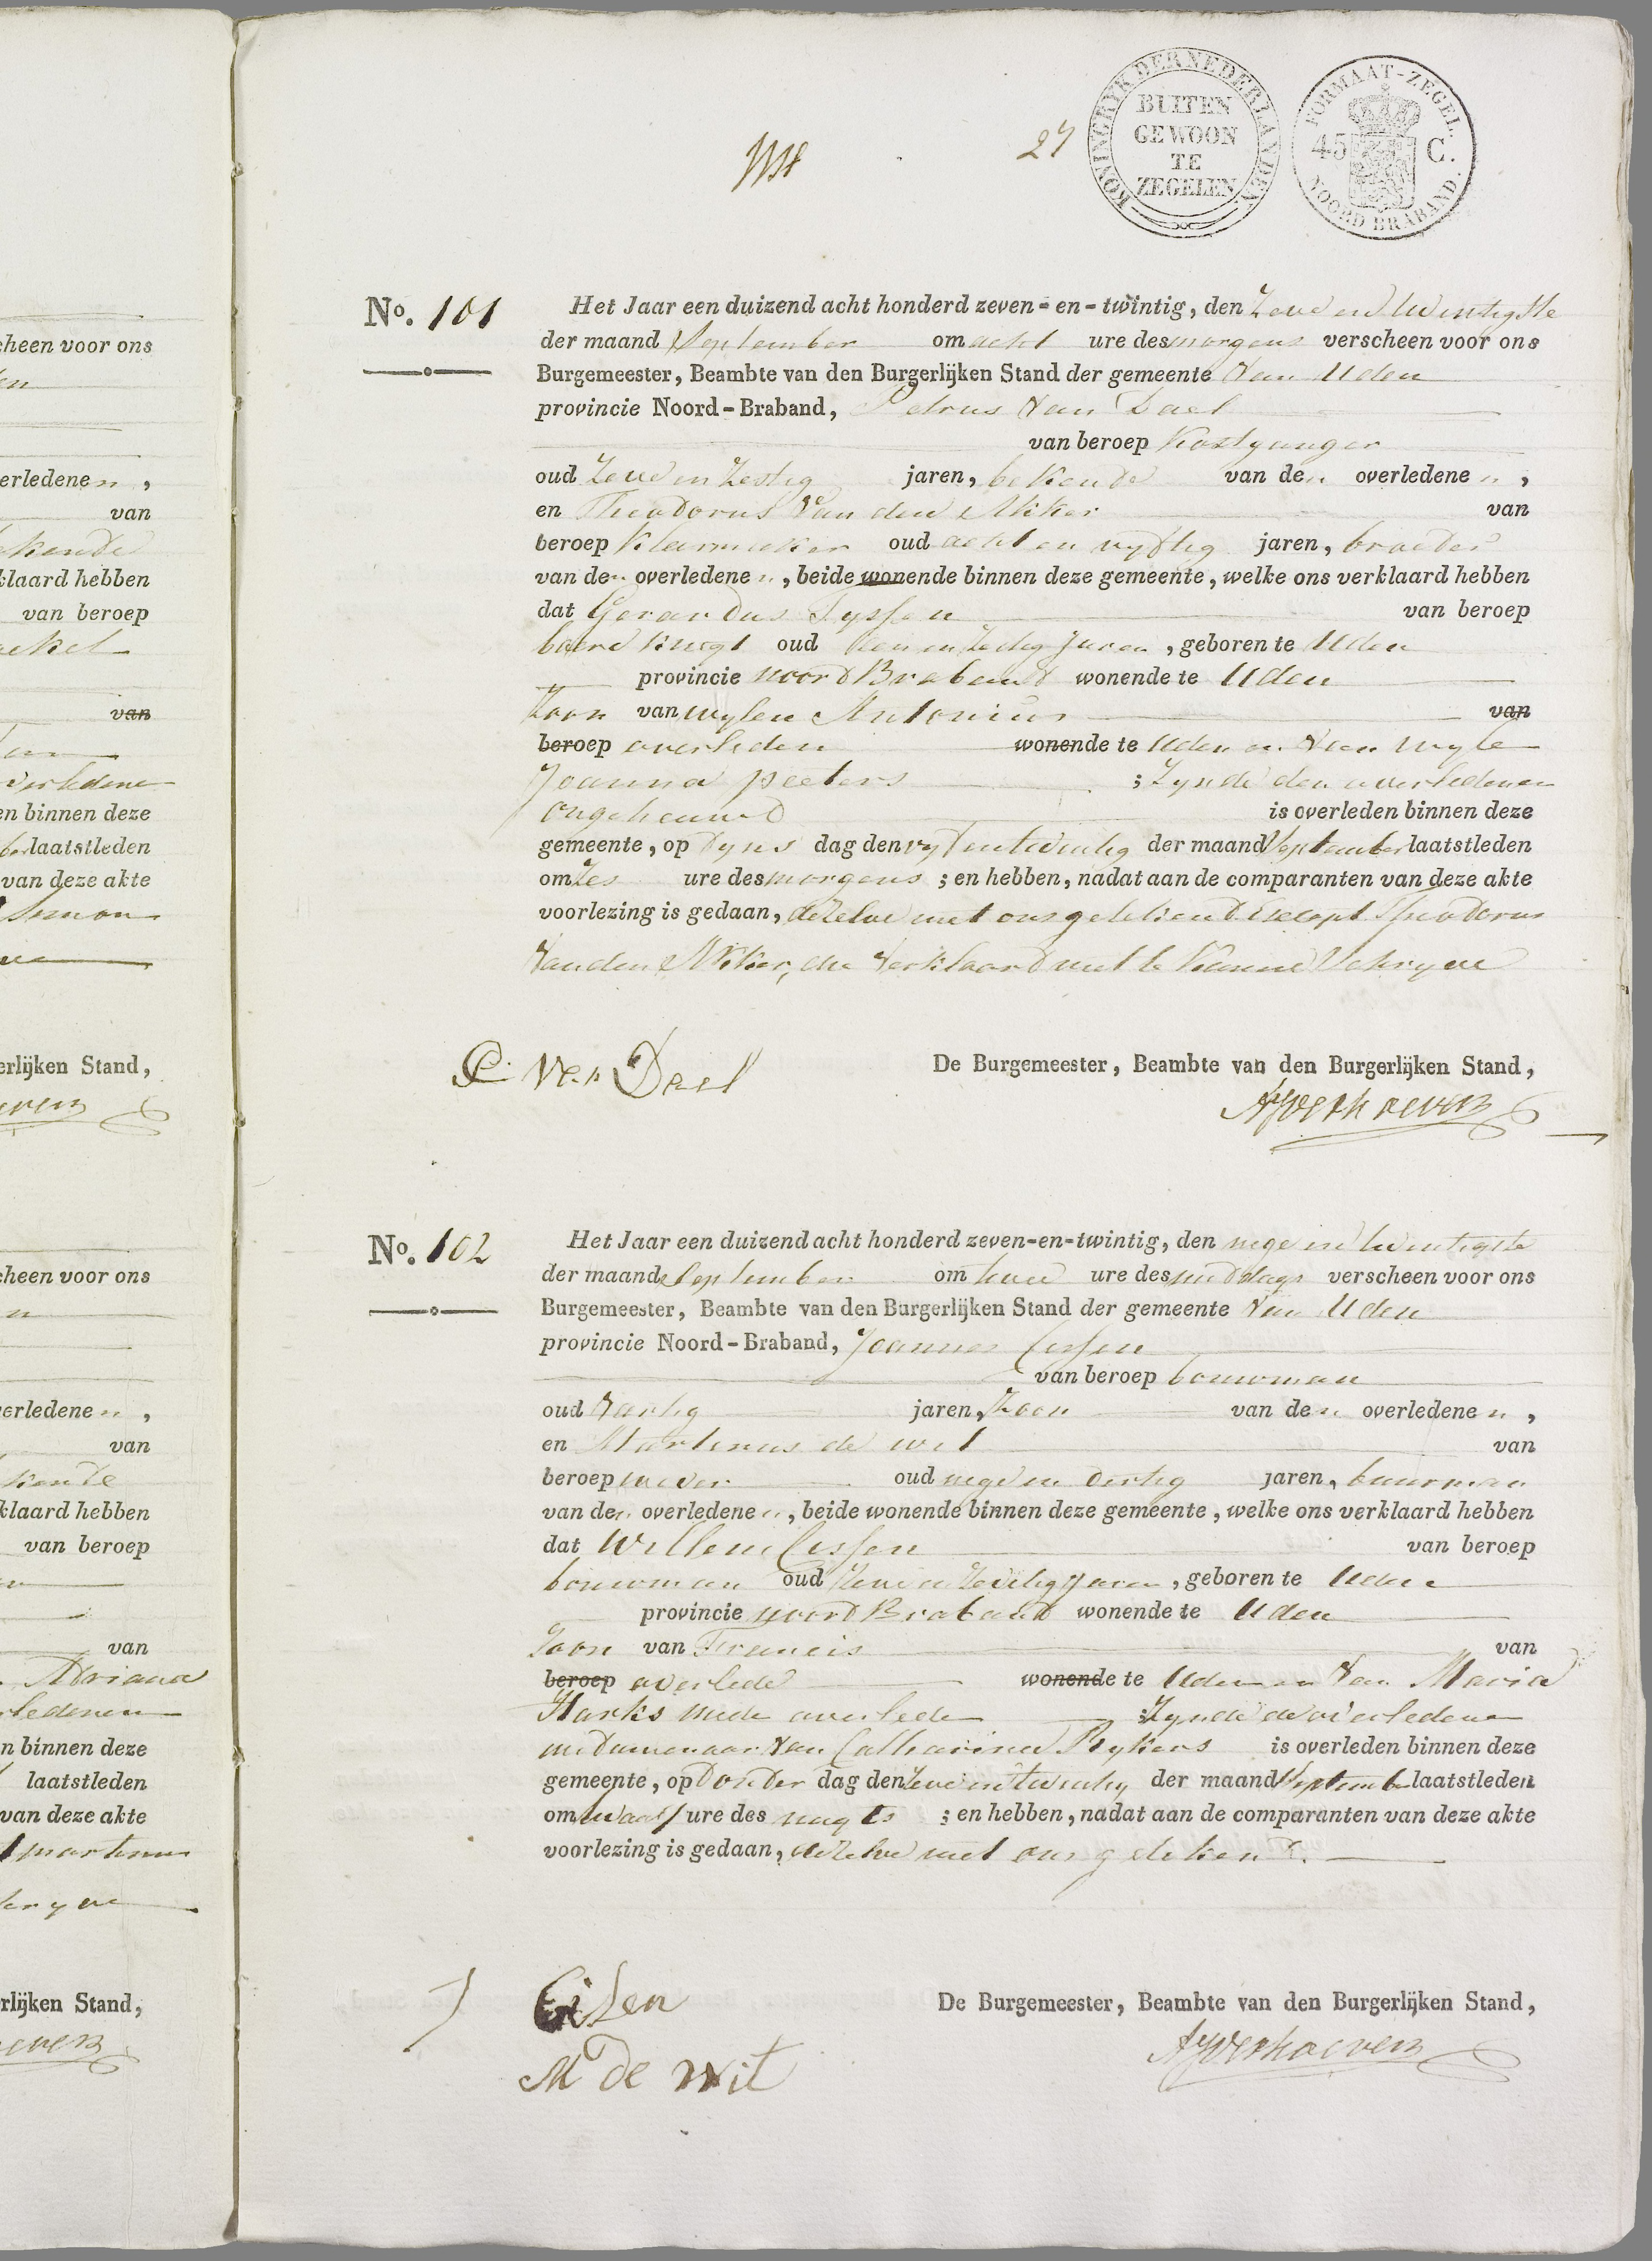 KONINGRYK DER NEDERLANDEN
BUITEN
GEWOON
TE
ZEGELEN
FORMAAT-ZEGEL.
45 C.
NOORD BRABAND.
27
No. 101
Het Jaar een duizend acht honderd zeven-en-twintig, den Zeve en twintigste
der maand September om acht ure des morgens verscheen voor ons
Burgemeester, Beambte van den Burgerlijken Stand der gemeente van Uden
provincie Noord-Braband, Petrus van Dael
van beroep Kostganger
oud Zeve en Zestig jaren, bekende van den overledenen,
en Theodorus Van den Akker van
beroep Kleermaker oud acht en vyftig jaren, broeder
van den overledenen, beide wonende binnen deze gemeente, welke ons verklaard hebben
dat Gerardus Tyssen van beroep
boere knegt oud Jaren, geboren te Uden
provincie noord Braband wonende te Uden
Zoon van wylen Antonius van
beroep overleden wonende te Uden en van wyle
Joanna peeters ; Zynde den overledenen
ongehuuwd is overleden binnen deze
gemeente, op dyns dag den vyf en twintig der maand September laatstleden
om Zes ure des morgens ; en hebben, nadat aan de comparanten van deze akte
voorlezing is gedaan, dezelve met ons getekend Except Theodorus
Van den Akker, die verklaard niet te kunne Schryve
P. Van Dael
De Burgemeester, Beambte van den Burgerlijken Stand,
Verhoeven
No. 102
Het Jaar een duizend acht honderd zeven-en-twintig, den nege en twentigste
der maand September om twee ure des middags verscheen voor ons
Burgemeester, Beambte van den Burgerlijken Stand der gemeente van Uden
provincie Noord-Braband, Joannes Cissen
van beroep bouwman
oud Vartig jaren, Zoon van den overledenen,
en Martinus de wit van
beroep wever oud nege en dertig jaren, buurman
van den overledenen, beide wonende binnen deze gemeente, welke ons verklaard hebben
dat Willem Cissen van beroep
bouwman oud Jaren, geboren te Uden
provincie noord Braband wonende te Uden
Zoon van Francis van
beroep overlede wonende te Uden en van Maria
Harks mede overleden ; Zynde de overledene
weduwenaar van Catharina Rykers is overleden binnen deze
gemeente, op donder dag den Zeve en twintig der maand Septemb laatstleden
om twaalf ure des nagts ; en hebben, nadat aan de comparanten van deze akte
voorlezing is gedaan, dezelve met ons getekend.
J Cisen
M De wit
De Burgemeester, Beambte van den Burgerlijken Stand,
Verhoeven